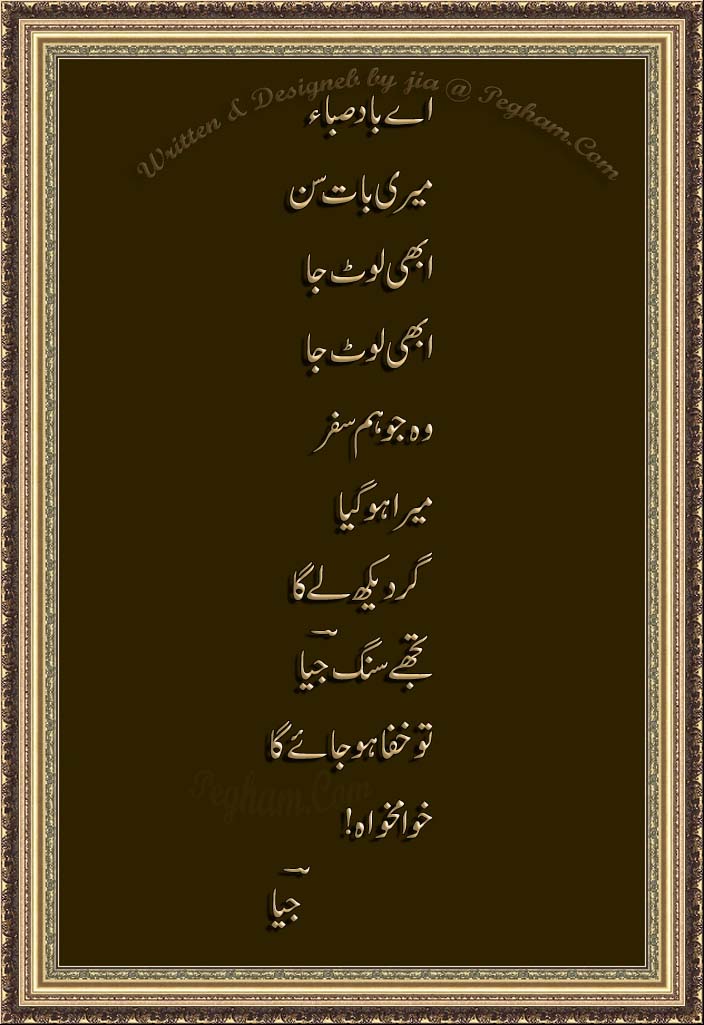 Written & Designeb by jia @ Pegham.Com
اے بادصباء
میری بات سن
ابھی لوٹ جا
ابھی لوٹ جا
وہ جو ہم سفر
میرا ہو گیا
گر دیکھ لے گا
تجھے سنگ جیؔا
تو خفا ہو جائے گا
خوامخواہ!
جیؔا
Pegham.Com